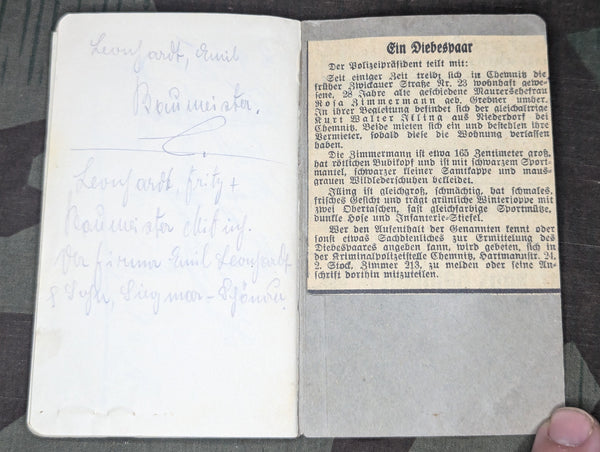 Leonhardt, Emil
Baumeister.
Leonhardt, Fritz +
Baumeister Mitinh.
Der Firma Emil Leonhardt
& Sohn, Siegmar-Schönau.
Ein Diebespaar
Der Polizeipräsident teilt mit:
Seit einiger Zeit treibt sich in Chemnitz die
früher Zwickauer Straße Nr. 23 wohnhaft gewe-
sene, 28 Jahre alte geschiedene Maurersehefrau
Rosa Zimmermann geb. Grebner umher.
In ihrer Begleitung befindet sich der gleichaltrige
Kurt Walter Illing aus Niederdorf bei
Chemnitz. Beide mieten sich ein und bestehlen ihre
Vermieter, sobald diese die Wohnung verlassen
haben.
Die Zimmermann ist etwa 165 Zentimeter groß,
hat rötlichen Bubikopf und ist mit schwarzem Sport-
mantel, schwarzer kleiner Samtkappe und maus-
grauen Wildlederschuhen bekleidet.
Illing ist gleichgroß, schmächtig, hat schmales,
frisches Gesicht und trägt grünliche Winterjoppe mit
zwei Obertaschen, fast gleichfarbige Sportmütze,
dunkle Hose und Infanterie-Stiefel.
Wer den Aufenthalt der Genannten kennt oder
sonst etwas Sachdienliches zur Ermittelung des
Diebespaares angeben kann, wird gebeten, sich in
der Kriminalpolizeistelle Chemnitz, Hartmannstr. 24,
2. Stock, Zimmer 213, zu melden oder seine An-
schrift dorthin mitzuteilen.